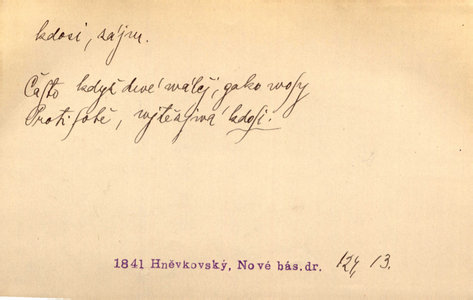 kdosi, zájm.
Často když dvé málej, gako wosy
Proti sobě, kdosi.
1841 Hněvkovský, Nové bás.dr. 124, 13.